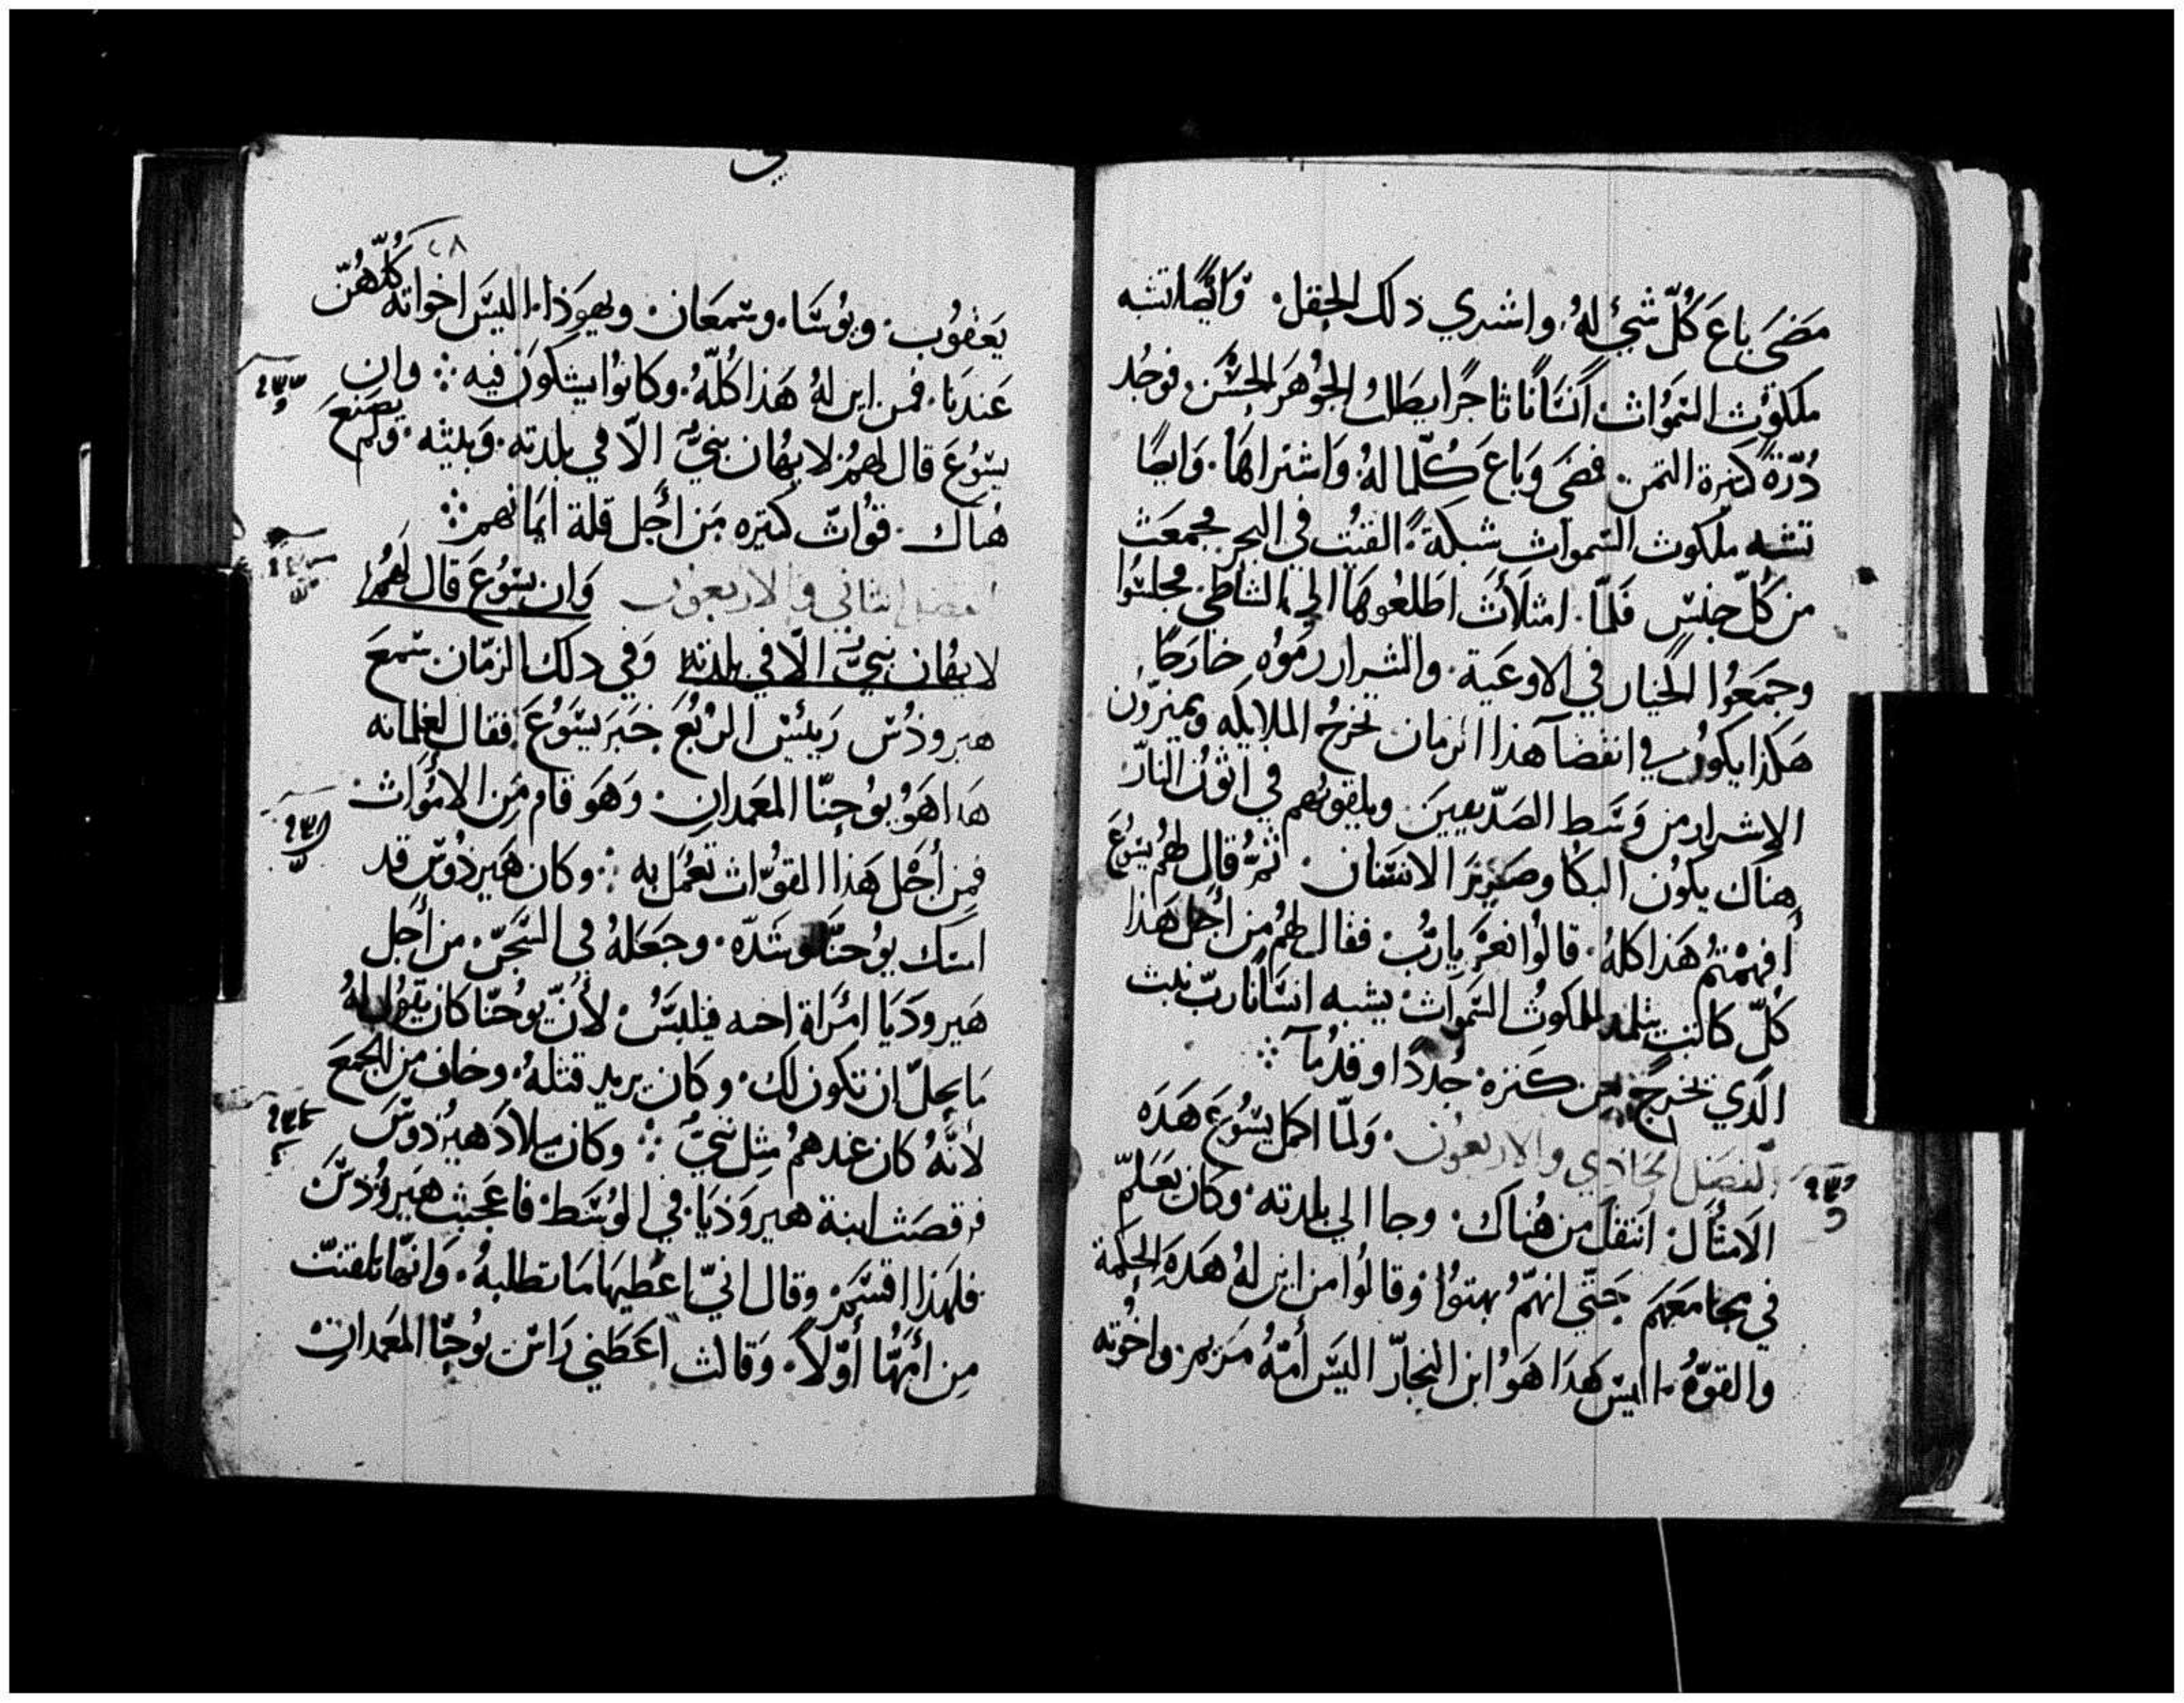 مَضَى باعَ كُلّ شَيْ لهُ. واشتري ذلك الحقل. وَايضًا تشبه
ملكوُث السَّموَاث انسَانًا تاجرًا يطلُبُ الجوُهَر الحسَن. فوجُد
دُرّةً كتيرة التمن. فمضَى وَباعَ كُلّما لهُ. وَاشتراهَا. وَايضًا
تشبه ملكوث السَّمواث شبكةً. القيُت في البحر فجمعَث
من كُلّ جنسٍ فَلمّا. امثلأث اطلعُوهَا الي الشاطي. فجلسُوا
وجمَعوُا الخيار في الاوعَية. والشرار رموُه خارجًا
هَكذا يكوُن في انقضآ هذا الزمان تخرجُ الملايكه ويميزّون
الاشرار من وَسَط الصّديقيينَ ويلقوُهم في اتوُن النارّ
هناك يكوُن البكا وصَريرَ الاسَنان. ثمُّ قال لهُم يسُوعَ
أفهمْتمُ هَذا كلهُ. قالوُا نعَمْ يا ربُّ. فقال لهُم من أجُل هَذا
كُلّ كاتبٍ يتلمذ لملكوُث السَّموَاث يشبه انسَانًا ربّ بيث
الّدي تخرجُ من كنزه. جُددًا وقدُمآ
الفصَل الحَادي والاربعوُن. وَلمّا اكمل يسُوعَ هَدَه
الَامثَال. انتقل من هُناك. وجا الي بلدته. وكان يَعَلمّ
في مجامعَهمَ حَتّي انهّمُ بهتوُا وَقالوُا من اين لهُ هَدَه الحكمة
والقوّهُ. اليسَ هَدَا هَوُ ابن النجارّ اليسَ أمّهُ مرَيم. واخُوته
٢٨
يَعَقوُب. ويوُسَا. وسمعَان. ويهوَذا. اليسَ اخواته كُلّهُنّ
عَندَنا. فمن اين لهُ هَذا كُلّهُ. وكانوُا يشكوّن فيه ⁘ وان
يسوُعَ قال لهمُ لا يهُان نبيٌّ الّا في بلدته. وَبيته. ولم يصَنعَ
هُناك. قوُاتّ كتيره مَن أجُل قلة ايمَانهم ⁘
الفصَل الثاني والاربعوُن وَان يسوُعَ قال لهُم
لا يهُان نبيٌّ الّا في بلدته وَفي دلك الزمّان. سَمعَ
هيروذُس ريئسَ الرُبعُ خبَرَ يسَوُعَ. فقال لغلمانه
هَا هَوُ يوُحنّا المعَمدان. وَهَو قام مِن الامُوَاث
فمِن أجُل هَذا القوُّاث تعُمَل به ⁘ وكان هَيرذوُسَ قد
امسَك يوُحَنّا وسَدّه. وجعَلهُ في السَّجن. من أجَل
هَيرودَيَا امرَأة اخيه فيلبسَُ. لأنّ يوُحَنّا كان يقوُل لهُ
مَا يحلّ ان تكون لك. وكان يريد قتلهُ. وخاف من الجَمعَ
لأنّهُ كان عَندهمُ مِثل نبيٌّ ⁘ وكان ميلادَ هَيرُذوسَ
فرقصَث ابنة هيروَذيَا. في الوُسَط. فاعَجَبث هَيروُذسَ
فلهَذا اقسَمَ. وقال انيّ اعُطيهَا مَا تطلبهُ. وَانهّا تلقنتّ
مِن أمّهَُا أوّلاً. وَقالث اعَطَني رَاسَ يوُحنّا المعَمدان